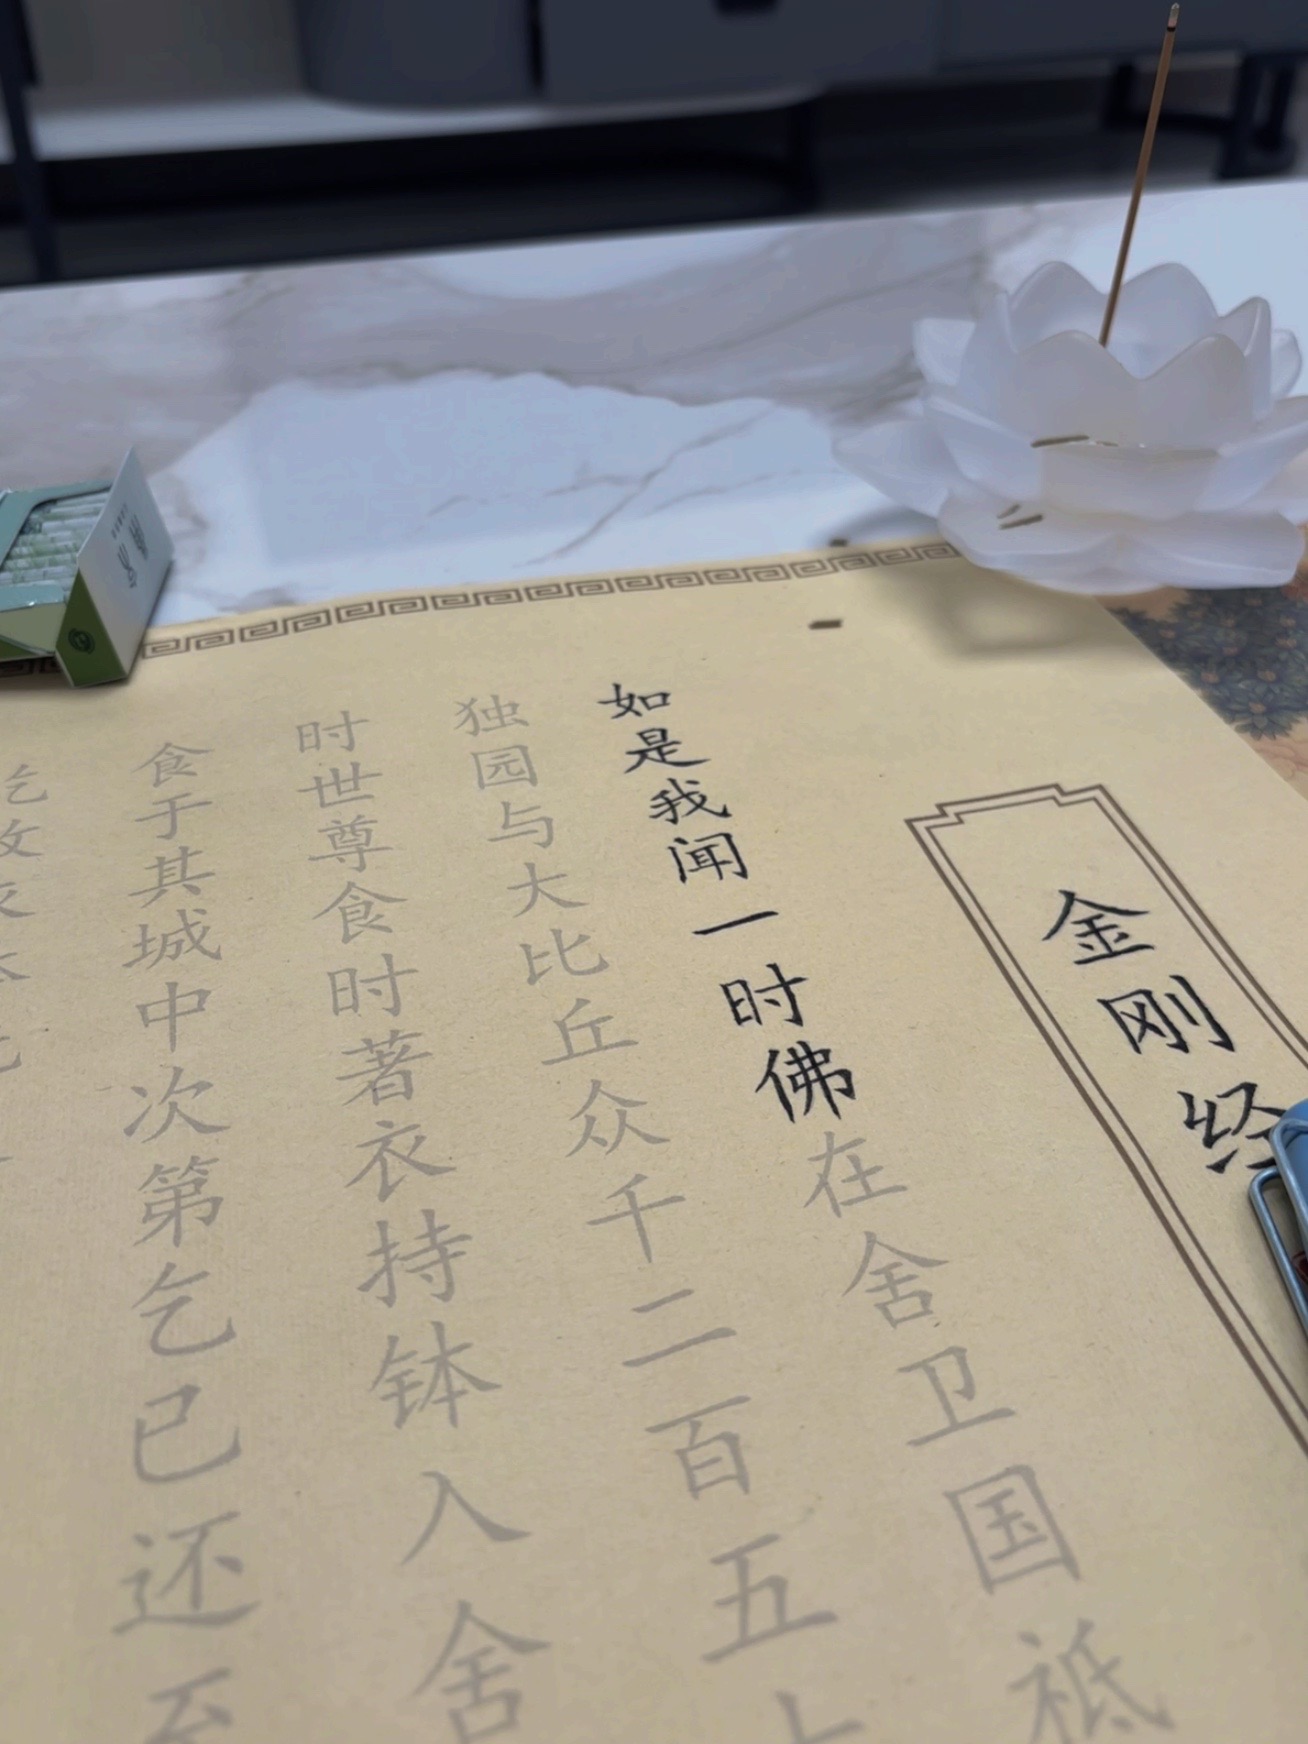 金刚经
如是我闻一时佛在舍卫国祇
独园与大比丘众千二百五
时世尊食时著衣持钵入舍
食于其城中次第乞已还至